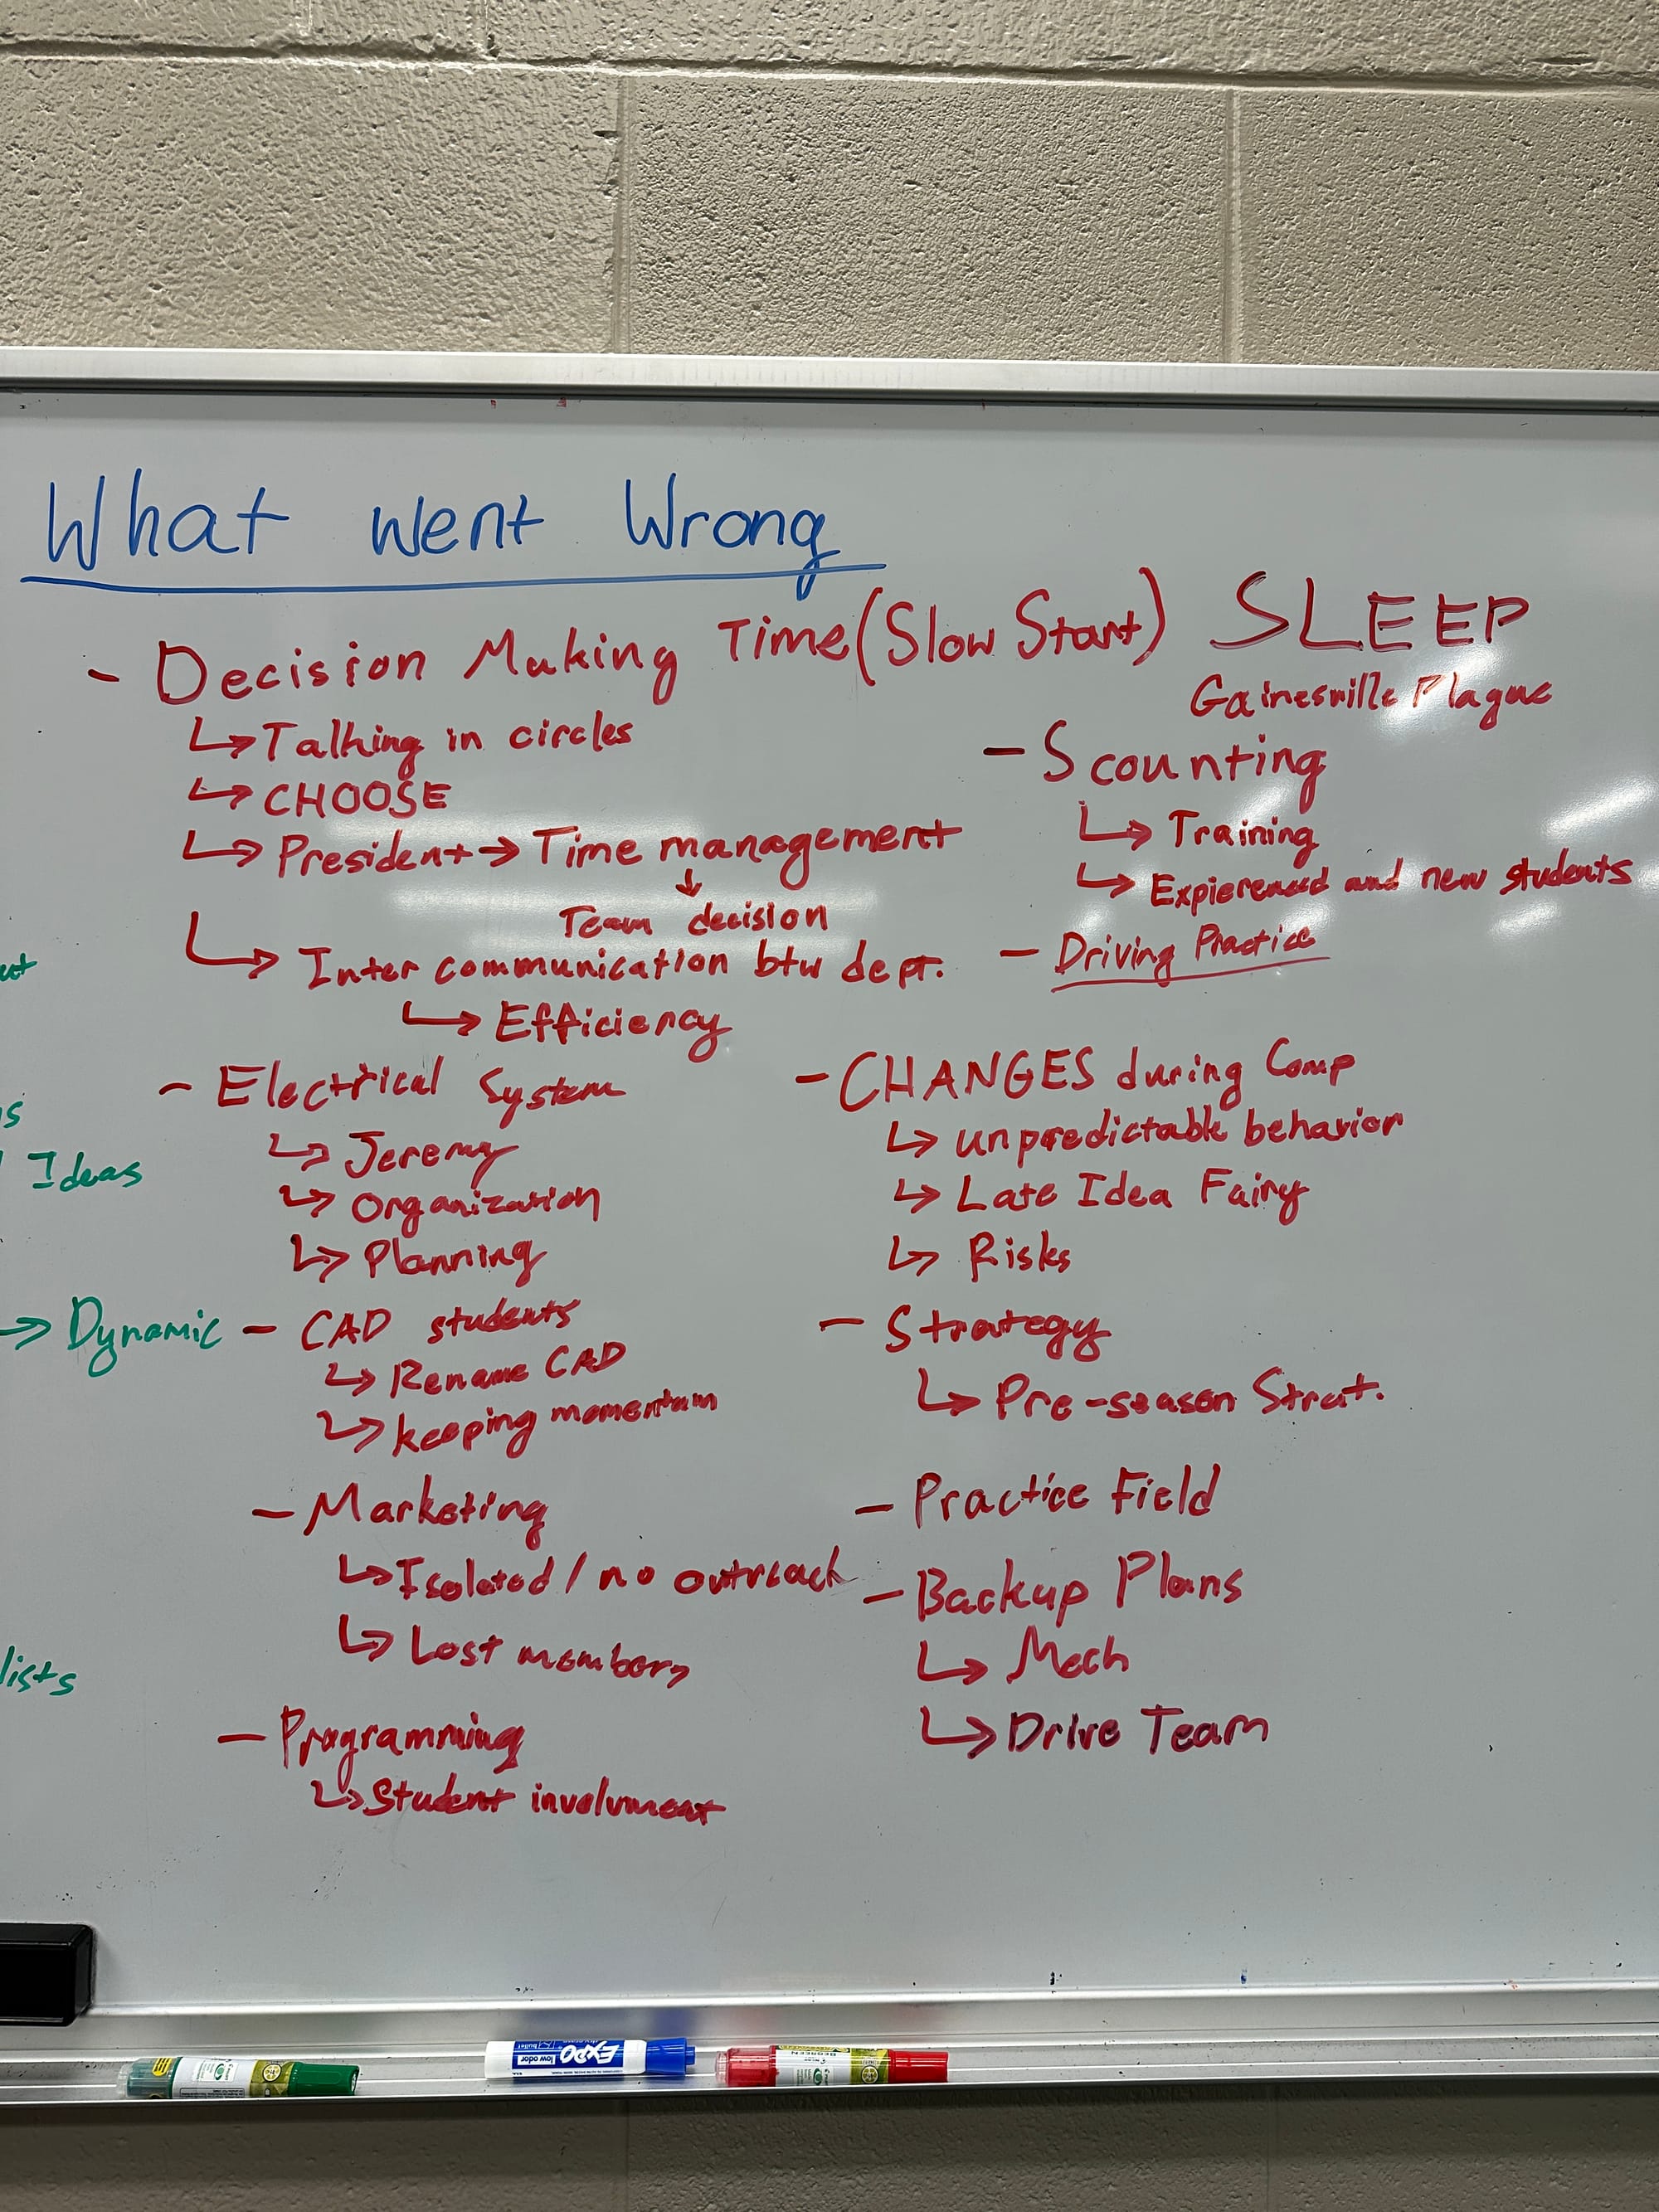 What went Wrong
- Decision Making Time (Slow Start)
↳ Talking in circles
↳ CHOOSE
↳ President → Time management
↓
Team decision
↳ Inter communication btw dept.
↳ Efficiency
- Electrical System
↳ Jeremy
↳ Organization
↳ Planning
- CAD students
↳ Rename CAD
↳ keeping momentum
- Marketing
↳ Isolated / no outreach
↳ Lost members
- Programming
↳ Student involvment
SLEEP
Gainesville Plague
- Scounting
↳ Training
↳ Expierenced and new students
- Driving Practice
- CHANGES during Comp
↳ unpredictable behavior
↳ Late Idea Fairy
↳ Risks
- Strategy
↳ Pre-season Strat.
- Practice Field
- Backup Plans
↳ Mech
↳ Drive Team
Ideas
→ Dynamic
lists
EXPO
low odor